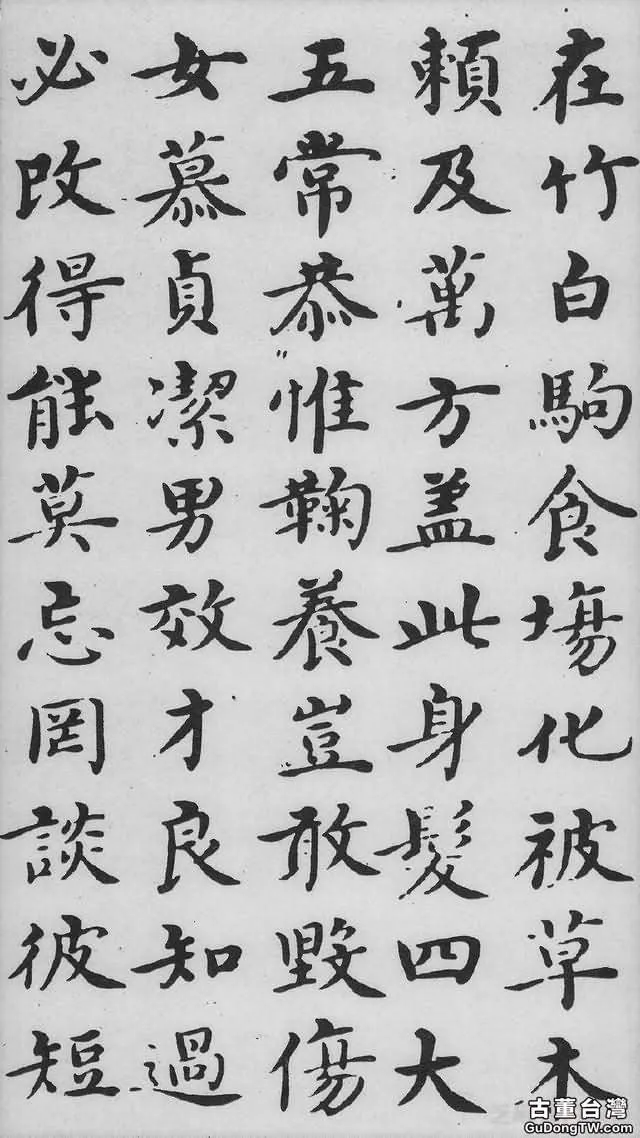 在竹白駒食場化被草木
賴及萬方盖此身髮四大
五常恭惟鞠養豈敢毀傷
女慕貞潔男效才良知過
必改得能莫忘罔談彼短
古董台灣
GuDongTW.com